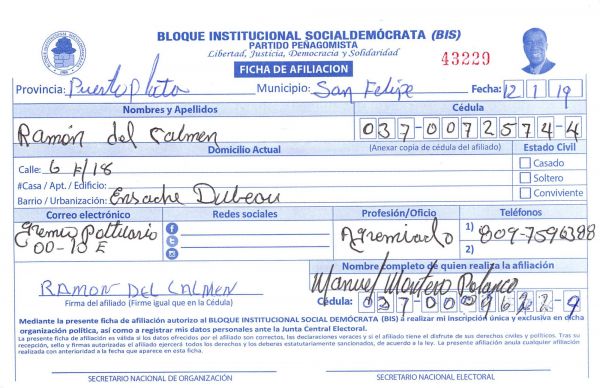 BLOQUE INSTITUCIONAL SOCIALDEMÓCRATA (BIS)
PARTIDO PEÑAGOMISTA
Libertad, Justicia, Democracia y Solidaridad
FICHA DE AFILIACION
43229
Provincia: Puerto Plata Municipio: San Felipe Fecha: 12 1 19
Nombres y Apellidos Cédula
Ramón del Calmen 037-0072574-4
Domicilio Actual (Anexar copia de cédula del afiliado) Estado Civil
Calle: 6 # 18 Casado
#Casa / Apt. / Edificio: Soltero
Barrio / Urbanización: Ensache Dubeau Conviviente
Correo electrónico Redes sociales Profesión/Oficio Teléfonos
Agremiado 1) 809-7596388
00-10 E 2)
Nombre completo de quien realiza la afiliación
RAMON DEL CALMEN Manuel Montero Polanco
Firma del afiliado (Firme igual que en la Cédula) Cédula: 037-0009622-9
Mediante la presente ficha de afiliación autorizo al BLOQUE INSTITUCIONAL SOCIAL DEMÓCRATA (BIS) a realizar mi inscripción única y exclusiva en dicha
organización política, así como a registrar mis datos personales ante la Junta Central Electoral.
La presente ficha de afiliación es válida si los datos ofrecidos por el afiliado son correctos, las declaraciones voraces y si el afiliado tiene el disfrute de sus derechos civiles y políticos. Tras su
recepción, sello y firmas autorizadas el afiliado ejercerá todos los derechos y los deberes estatutariamente sancionados, de acuerdo a la ley. La presente afiliación anula cualquier afiliación
realizada con anterioridad a la fecha que aparece en esta ficha.
SECRETARIO NACIONAL DE ORGANIZACIÓN SECRETARIO NACIONAL ELECTORAL